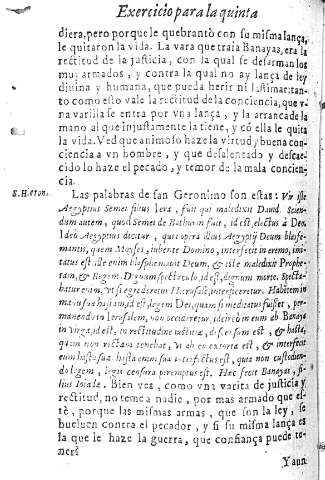 Exercicio para la quinta
diera, pero porque le quebrantò con su misma lança,
le quitaron la vida. La vara que traia Banayas, era la
rectitud de la justicia, con la qual se desarman los
muy armados, y contra la qual no ay lança de ley
diuina y humana, que pueda herir ni lastimar: tan-
to como esto vale la rectitud de la conciencia, que v-
na varilla se entra por vna lança, y la arranca de la
mano al que injustamente la tiene, y cō ella le quita
la vida. Ved que animoso haze la virtud y buena con-
ciencia a vn hombre, y que desalentado y descae-
cido lo haze el pecado, y temor de la mala concien-
cia.
S. Hieron.
Las palabras de san Geronimo son estas: Vir ille
Aegyptius Semei filius Iera, fuit qui maledixit Dauid. Scien-
dum autem, quod Semei de Bathurim fuit, id est, electus à Deo.
Ideo Aegyptius dicitur, quia opera illius Aegyptij Deum blasfe-
mantis, quem Moyses, iubente Domino, interfecit in eremo, imi-
tatus est. ille enim blasphemauit Deum, & iste maledixit Prophe-
tam, & Regem. Dignum spectaculo, id est, dignum morte. Specta-
batur enim, vt si egrederetur Hierusalē, interficeretur. Habitem in
manu sua hastam, id est, legem Dei, quam si meditatus fuisset, per-
manendo in Ierusalem, non occideretur, idcirco in eum ab Banaya
in virga, id est, in rectitudine iustitiæ, descensum est, & hasta,
quam non rectam tenebat, vi ab eo extorta est, & interfecit
eum hasta sua. hasta enim sua interfectus est, quia non custodien-
do legem, legis censura peremptus est. Hæc fecit Banayas, fi-
lius Ioiada. Bien veis, como vna varita de justicia y
rectitud, no teme a nadie, por mas armado que es-
tè, porque las mismas armas, que son la ley, se
bueluen contra el pecador, y si su misma lança es
la que le haze la guerra, que confiança puede te-
ner?
Y aun